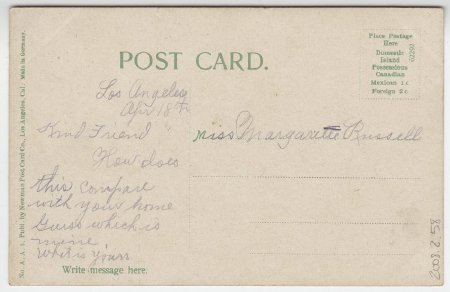 POST CARD.
Place Postage
Here
Domestic
Island
Possessions
Canadian
Mexican 1 c.
Foreign 2 c.
Los Angeles
Apr 18th
Kind Friend
Miss Margarette Russell
How does
this compare
with your home
Guess which is
mine
What is yours
Write message here.
No. A. A. 1. Publ. by Newman Post Card Co., Los Angeles, Cal. Made in Germany.
2008.2.58